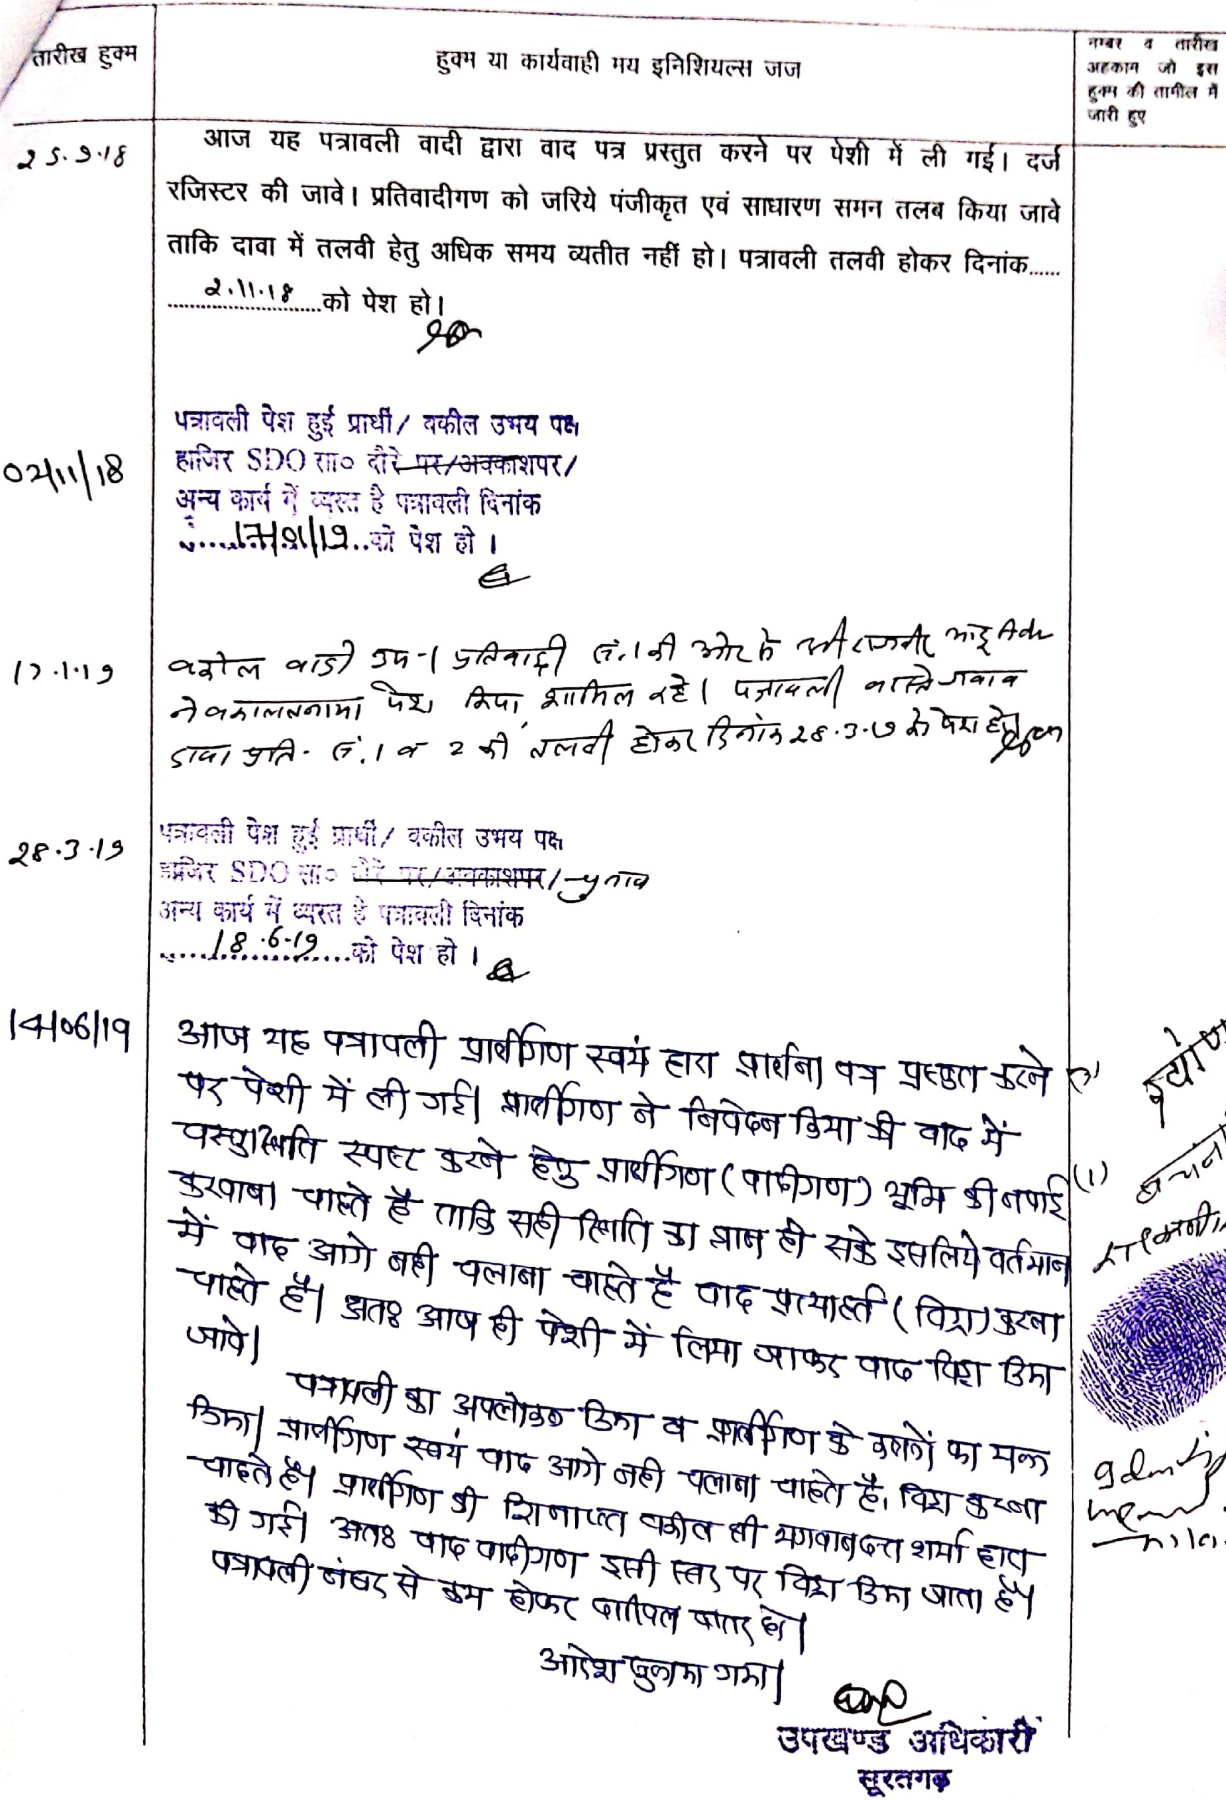 तारीख हुक्म
हुक्म या कार्यवाही मय इनिशियल्स जज
नम्बर व तारीख
अहकाम जो इस
हुक्म की तामील में
जारी हुए
25.9.18
आज यह पत्रावली वादी द्वारा वाद पत्र प्रस्तुत करने पर पेशी में ली गई। दर्ज
रजिस्टर की जावे। प्रतिवादीगण को जरिये पंजीकृत एवं साधारण समन तलब किया जावे
ताकि दावा में तलवी हेतु अधिक समय व्यतीत नहीं हो। पत्रावली तलवी होकर दिनांक......
2.11.18 को पेश हो।
पत्रावली पेश हुई प्रार्थी/ वकील उभय पक्ष
02/11/18
हाजिर SDO सा० दौरे पर/अवकाशपर/
अन्य कार्य में व्यस्त है पत्रावली दिनांक
17/01/19 को पेश हो ।
17.1.19
वकील वादी उप-। प्रतिवादी सं.1 की ओर से श्री Adv
ने वकालतनामा पेश किया, शामिल रहे। पत्रावली वास्ते जवाब
दावा प्रति. सं.1 व 2 की तलबी होकर दिनांक 28.3.19 को पेश हो
पत्रावली पेश हुई प्रार्थी/ वकील उभय पक्ष
28.3.19
हाजिर SDO सा० दौरे पर/अवकाशपर/ चुनाव
अन्य कार्य में व्यस्त है पत्रावली दिनांक
18.6.19 को पेश हो ।
14/06/19
आज यह पत्रावली प्रार्थीगण स्वयं द्वारा प्रार्थना पत्र प्रस्तुत करने
पर पेशी में ली गई। प्रार्थीगण ने निवेदन किया की वाद में
वस्तुस्थिति स्पष्ट करने हेतु प्रार्थीगण (वादीगण) भूमि की नपाई
(1)
करवाना चाहते है ताकि सही स्थिति का ज्ञान हो सके इसलिये वर्तमान
में वाद आगे नही चलाना चाहते है वाद प्रत्याहर्त (विड्रा) करना
चाहते है। अतः आज ही पेशी में लिया जाकर वाद विड्रा किया
जावे।
पत्रावली का अवलोकन किया व प्रार्थीगण के कथनों का मनन
किया। प्रार्थीगण स्वयं वाद आगे नही चलाना चाहते है, विड्रा करना
चाहते है। प्रार्थीगण की शिनाख्त वकील श्री भगवानदत्त शर्मा द्वारा
की गई। अतः वाद वादीगण इसी स्तर पर विड्रा किया जाता है।
पत्रावली नंबर से कम होकर दाखिल दफ्तर हो।
आदेश सुनाया गया।
उपखण्ड अधिकारी
सूरतगढ़